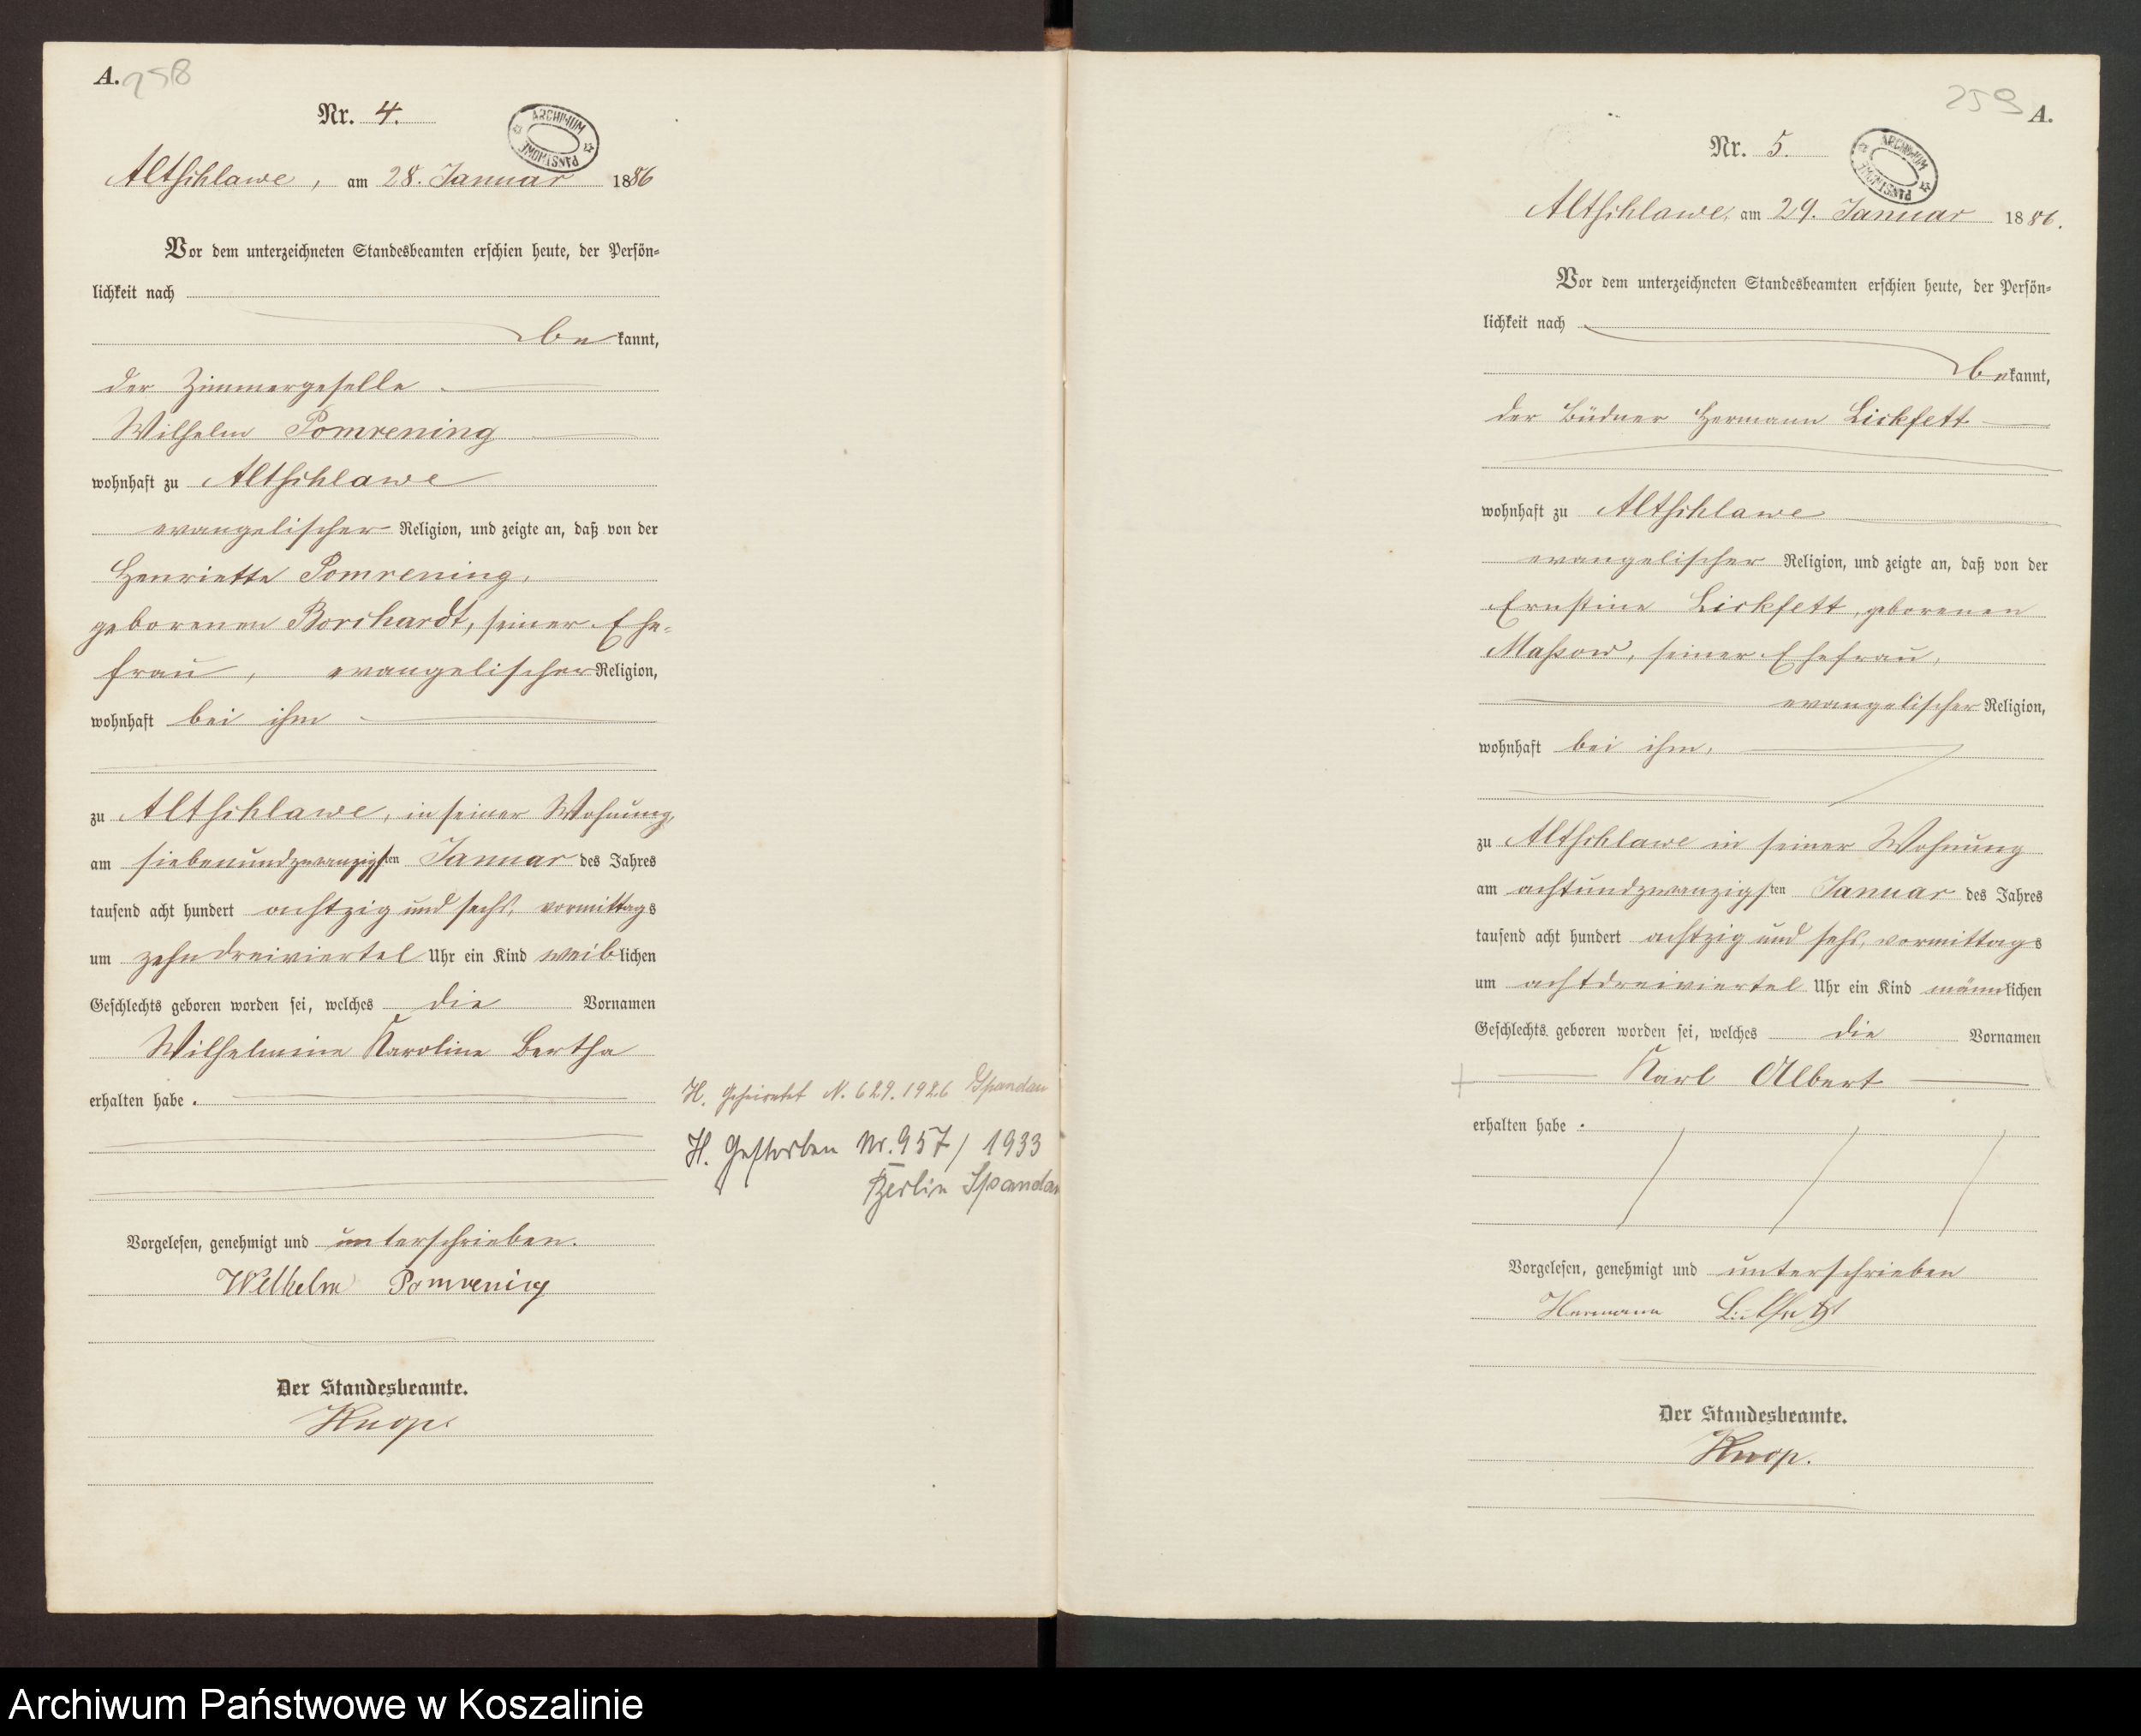 A. 258
Nr. 4.
ARCHIWUM PAŃSTWOWE
Altschlawe, am 28. Januar 1886
Vor dem unterzeichneten Standesbeamten erschien heute, der Persön-
lichkeit nach
bekannt,
der Zimmergeselle
Wilhelm Pomrening
wohnhaft zu Altschlawe
evangelischer Religion, und zeigte an, daß von der
Henriette Pomrening,
geborenen Borchardt, seiner Ehe-
frau, evangelischer Religion,
wohnhaft bei ihm
zu Altschlawe, in seiner Wohnung,
am siebenundzwanzigsten Januar des Jahres
tausend acht hundert achtzig und sechs, vormittags
um zehndreiviertel Uhr ein Kind weiblichen
Geschlechts geboren worden sei, welches die Vornamen
Wilhelmine Karoline Bertha
erhalten habe.
H. Geheiratet N. 629. 1926 Spandau
H. Gestorben Nr. 957/1933
Berlin Spandau
Vorgelesen, genehmigt und unterschrieben.
Wilhelm Pomrening
Der Standesbeamte.
Knop.
259 A.
Nr. 5.
ARCHIWUM PAŃSTWOWE
Altschlawe, am 29. Januar 1886.
Vor dem unterzeichneten Standesbeamten erschien heute, der Persön-
lichkeit nach
bekannt,
der Büdner Hermann Lickfett
wohnhaft zu Altschlawe
evangelischer Religion, und zeigte an, daß von der
Ernstine Lickfett, geborenen
Maßow, seiner Ehefrau,
evangelischer Religion,
wohnhaft bei ihm,
zu Altschlawe in seiner Wohnung
am achtundzwanzigsten Januar des Jahres
tausend acht hundert achtzig und sechs, vormittags
um achtdreiviertel Uhr ein Kind männlichen
Geschlechts geboren worden sei, welches die Vornamen
Karl Albert
erhalten habe.
Vorgelesen, genehmigt und unterschrieben
Hermann Lickfett
Der Standesbeamte.
Knop.
Archiwum Państwowe w Koszalinie